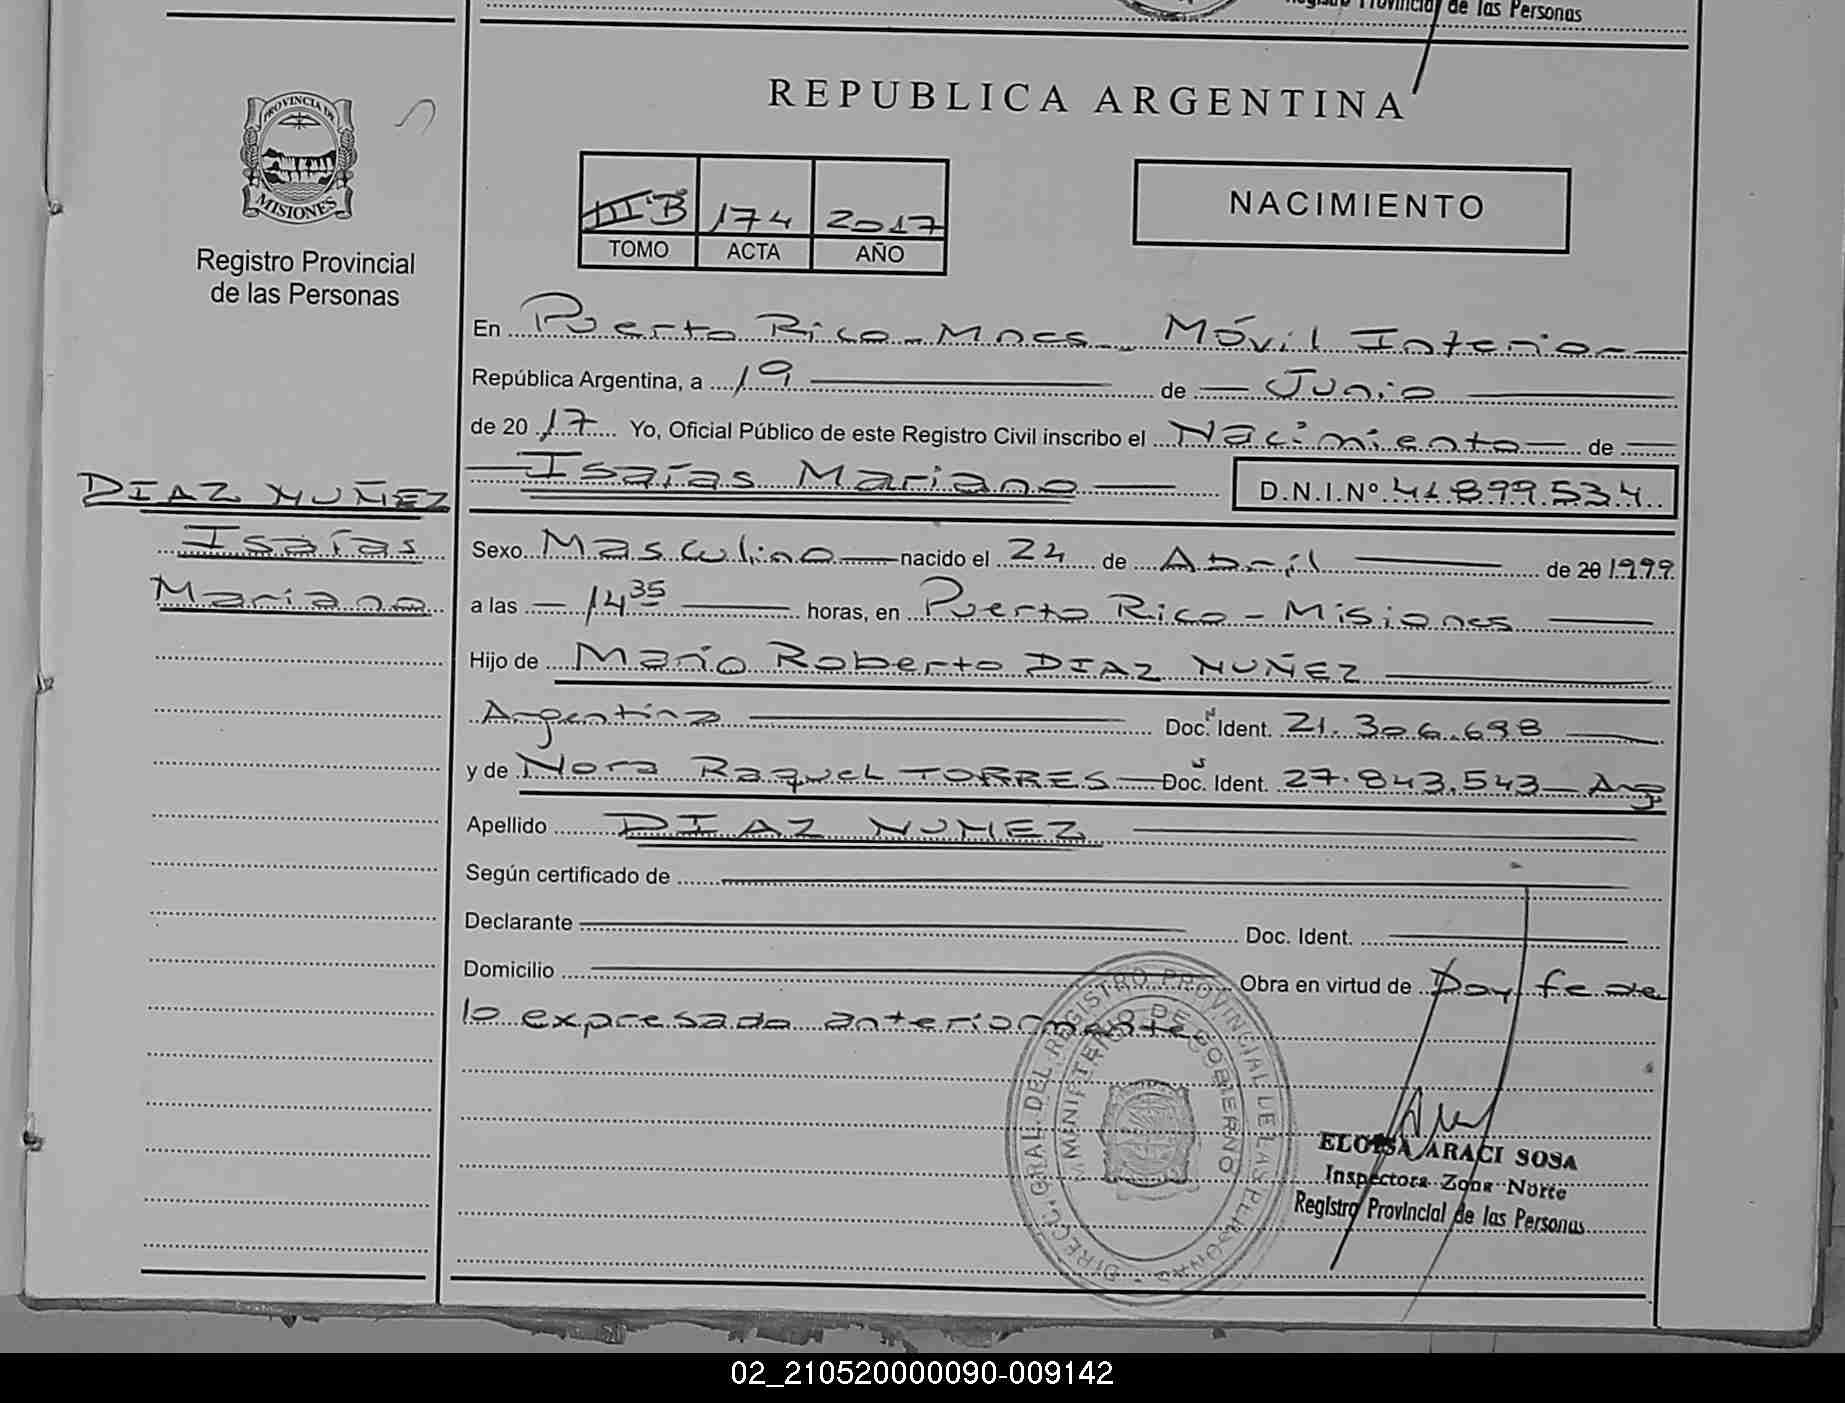 Registro Provincial de las Personas
REPUBLICA ARGENTINA
PROVINCIA DE
MISIONES
Registro Provincial
de las Personas
III B 174 2017
TOMO ACTA AÑO
NACIMIENTO
En Puerto Rico - Mnes - Móvil Interior
República Argentina, a 19 de Junio
de 20 17 Yo, Oficial Público de este Registro Civil inscribo el Nacimiento de
Isaías Mariano D.N.I.Nº 41.899.534
DIAZ NUÑEZ
Isaías
Mariano
Sexo Masculino nacido el 24 de Abril de 20 1999
a las 14 35 horas, en Puerto Rico - Misiones
Hijo de Mario Roberto DIAZ NUÑEZ
Argentina Doc. Ident. 21.306.698
y de Nora Raquel TORRES Doc. Ident. 27.843.543 - Arg
Apellido DIAZ NUÑEZ
Según certificado de
Declarante Doc. Ident.
Domicilio Obra en virtud de Doy fe de
lo expresado anteriormente
DIRECC. GRAL. DEL REGISTRO PROVINCIAL DE LAS PERSONAS
MINISTERIO DE GOBIERNO
ELOISA ARACI SOSA
Inspectora Zona Norte
Registro Provincial de las Personas
02_210520000090-009142